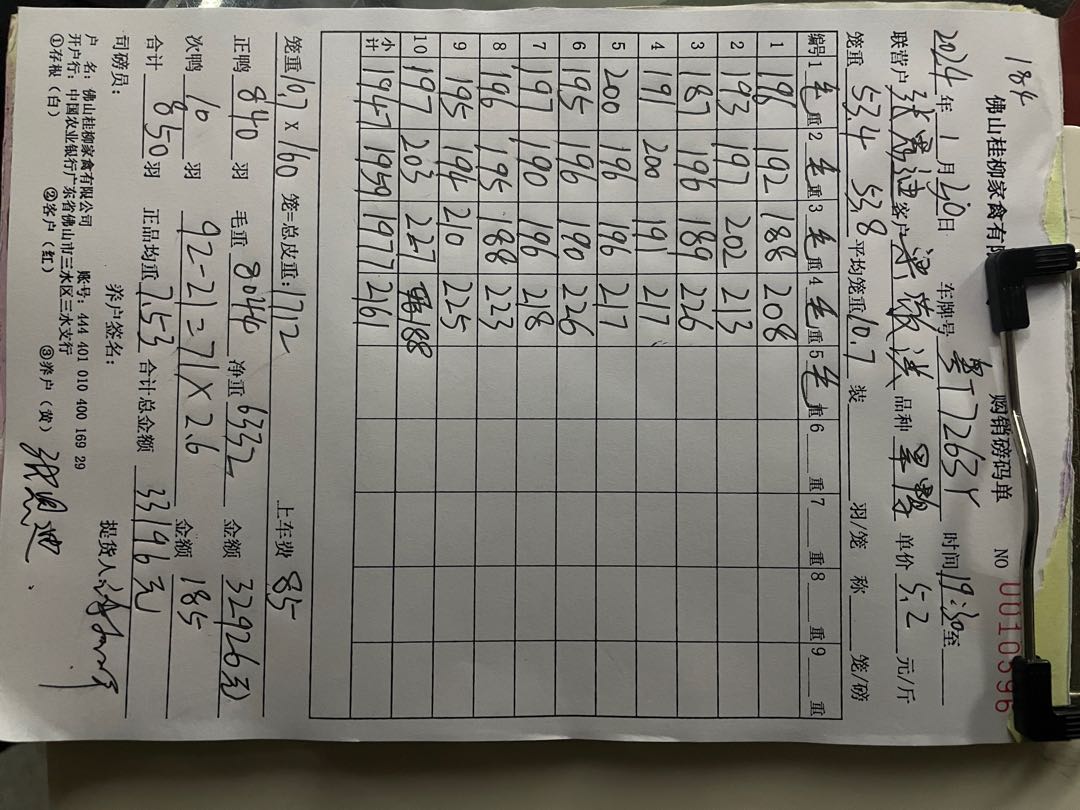 184
佛山桂柳家禽有限 购销磅码单 NO 0010596
2024年1月20日 车牌号 粤T7263Y 时间 19:30至
联营户 客户 品种 单价 5.2 元/斤
笼重 53.4 53.8 平均笼重 10.7 装 羽/笼 称 笼/磅
编号 1 毛重 2 毛重 3 毛重 4 毛重 5 毛重 6 重 7 重 8 重 9 重
1 196 192 188 208
2 193 197 202 213
3 187 196 189 226
4 191 200 191 217
5 200 196 196 217
6 195 196 190 226
7 197 190 196 218
8 196 195 188 223
9 195 194 210 225
10 197 203 227 188
小计 1947 1959 1977 2161
笼重 10.7 × 160 笼=总皮重: 1712 上车费 85
正鸭 840 羽 毛重 8044 净重 6332 金额 32926元
次鸭 10 羽 92-21=71×2.6 金额 185
合计 850 羽 正品均重 7.53 合计总金额 33196元
司磅员: 养户签名: 提货人:
户 名: 佛山桂柳家禽有限公司 账号: 444 401 010 400 169 29
开户行: 中国农业银行广东省佛山市三水区三水支行
①存根(白) ②客户(红) ③养户(黄)